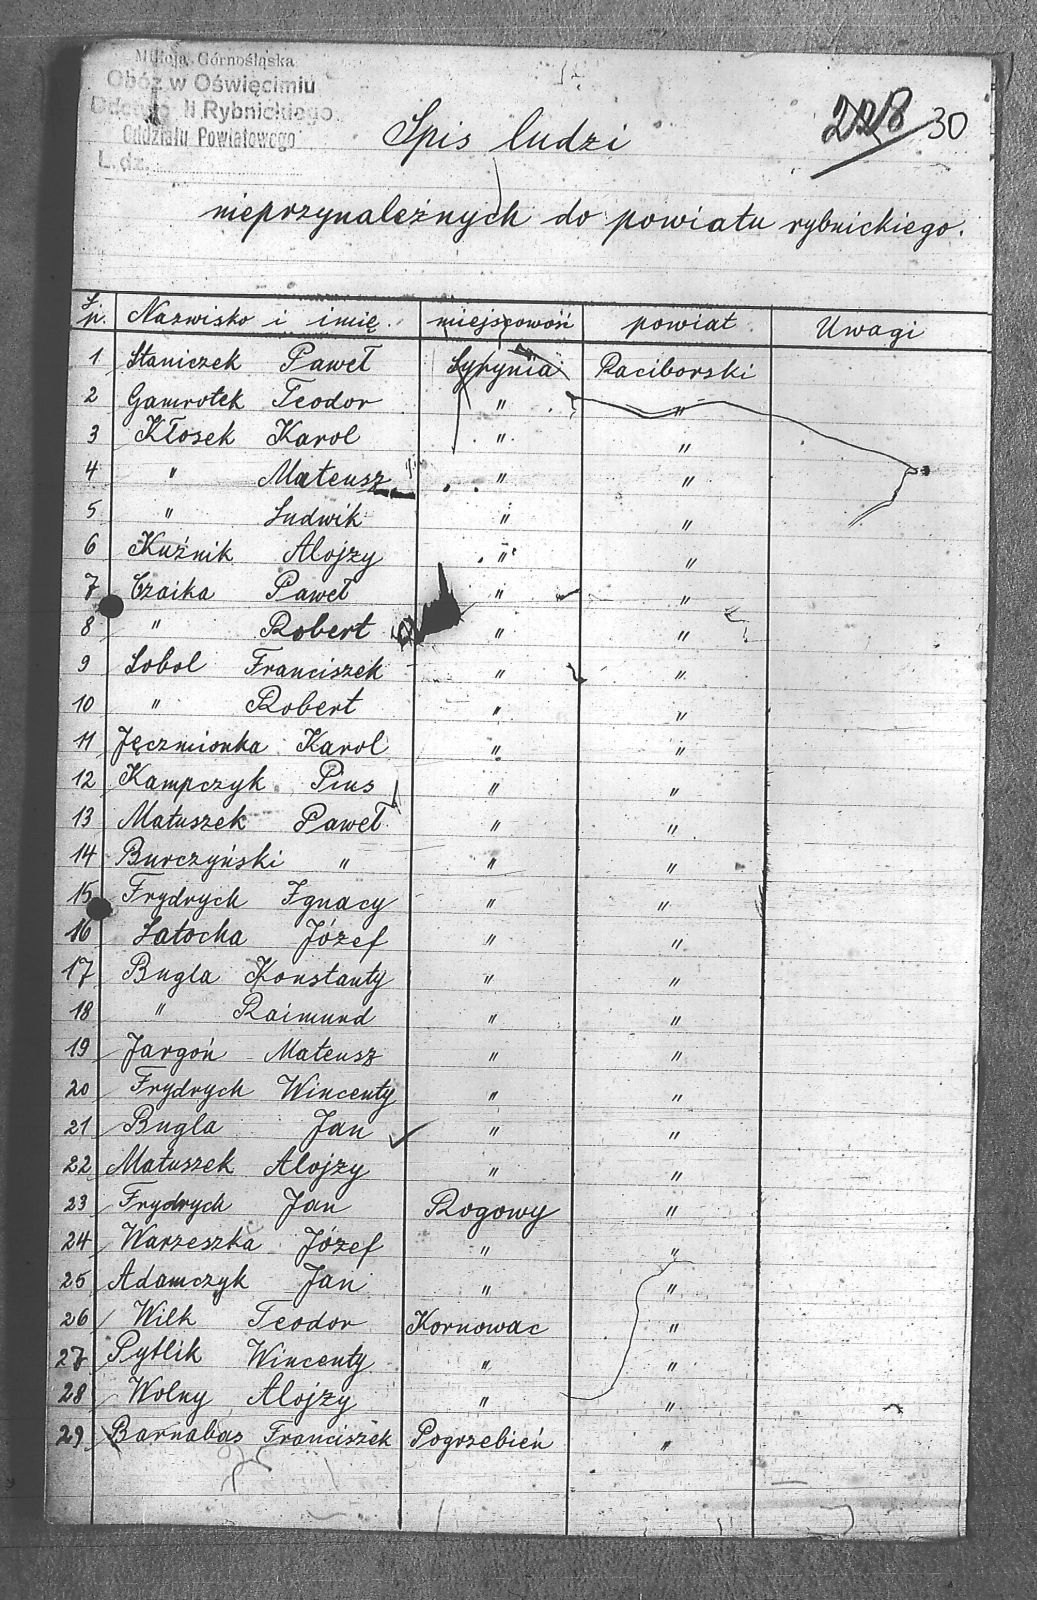 Milicja Górnośląska
Obóz w Oświęcimiu
II Rybnickiego
Oddziału Powiatowego
L. dz.
228 30
Spis ludzi
nieprzynależnych do powiatu rybnickiego.
Lp. Nazwisko i imię miejscowość powiat Uwagi
1 Staniczek Paweł Syrynia Raciborski
2 Gamrotek Teodor " "
3 Kłosek Karol " "
4 " Mateusz " "
5 " Ludwik " "
6 Kuźnik Alojzy " "
7 Czaika Paweł " "
8 " Robert " "
9 Sobol Franciszek " "
10 " Robert " "
11 Jęczmionka Karol " "
12 Kampczyk Pius " "
13 Matuszek Paweł " "
14 Burczyński " " "
15 Frydrych Ignacy " "
16 Latocha Józef " "
17 Bugla Konstanty " "
18 " Raimund " "
19 Jargoń Mateusz " "
20 Frydrych Wincenty " "
21 Bugla Jan " "
22 Matuszek Alojzy " "
23 Frydrych Jan Rogowy "
24 Warzeszka Józef " "
25 Adamczyk Jan " "
26 Wilk Teodor Kornowac "
27 Pytlik Wincenty " "
28 Wolny Alojzy " "
29 Barnabas Franciszek Pogrzebień "